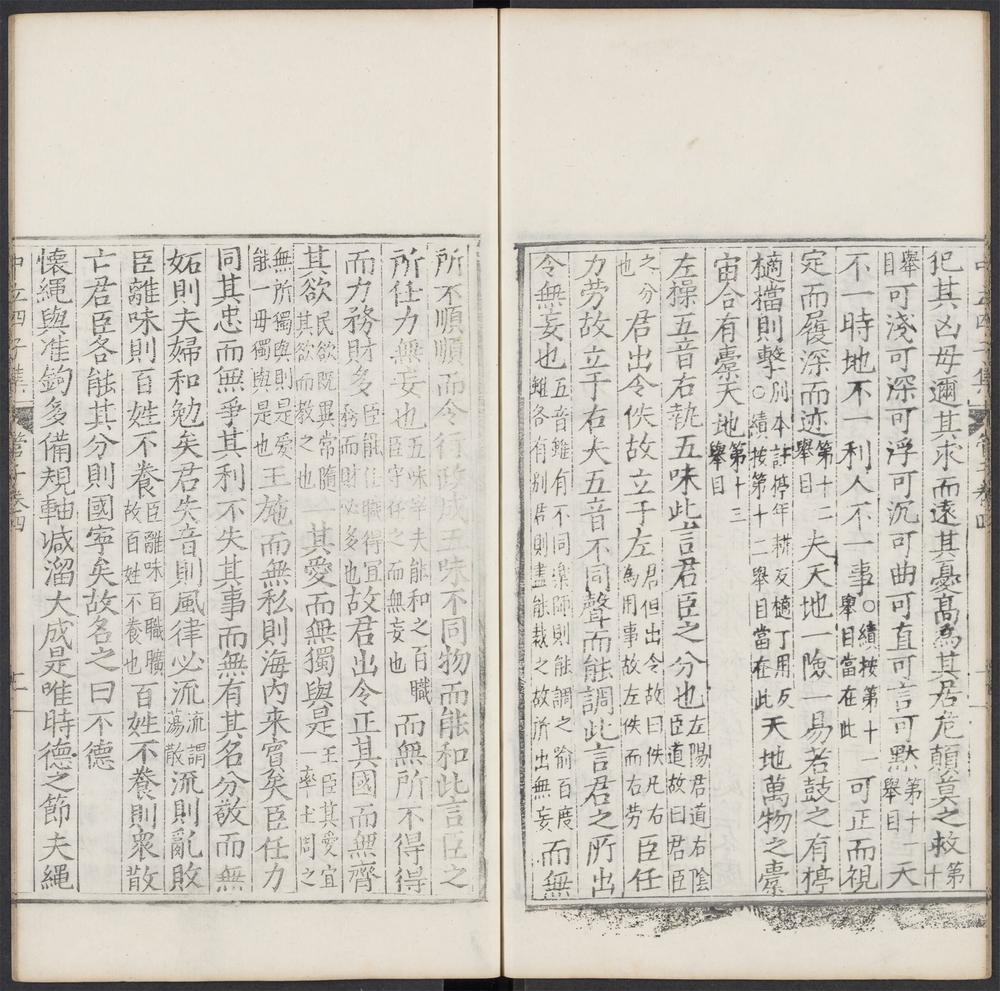 犯其凶毋邇其求而遠其憂高為其居危顛莫之救第十
舉目可淺可深可浮可沉可曲可直可言可默第十一舉目天
不一時地不一利人不一事○績按第十一舉目當在此可正而視
定而履深而迹第十二舉目夫天地一險一易若鼓之有桴
擿擋則擊○績按第十二舉目當在此天地萬物之橐
宙合有橐天地第十三舉目
左操五音右執五味此言君臣之分也左陽君道右陰臣道故曰君臣
之分也君出令佚故立于左君但出令故曰佚凡右為用事故左佚而右劳臣任
力劳故立于右夫五音不同聲而能調此言君之所出
令無妄也五音雖有不同樂師則能調之喻百度雖各有别君則盡能裁之故所出無妄而無
所不順順而令行政成五味不同物而能和此言臣之
所任力無妄也五味宰夫能和之百職臣守任之而無妄也而無所不得得
而力務財多臣能任職得宜務而財必多也故君出令正其國而無齊
其欲民欲既異常隨其欲而教之也一其愛而無獨與是王臣其愛宜一率士周之
無所獨與則是愛能一毋獨與是也王施而無私則海内來賓矣臣任力
同其忠而無爭其利不失其事而無有其名分敬而無
妬則夫婦和勉矣君失音則風律必流流謂蕩散流則亂敗
臣離味則百姓不養臣離味百職曠故百姓不養也百姓不養則衆散
亡君臣各能其分則國寧矣故名之曰不德
懷繩與准鉤多備規軸減溜大成是唯時德之節夫繩